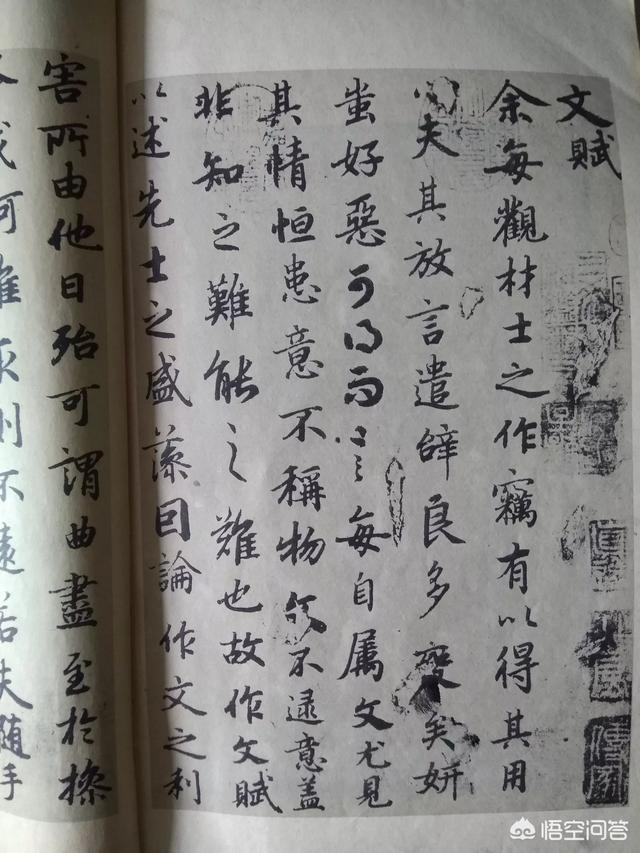 文賦
余每觀材士之作竊有以得其用
心夫其放言遣辭良多變矣妍
蚩好惡可得而言每自属文尤見
其情恒患意不稱物文不逮意盖
非知之難能之難也故作文賦
以述先士之盛藻因論作文之利
害所由他日殆可謂曲盡至於操
伐柯雖取則不遠若夫随手
悟空问答